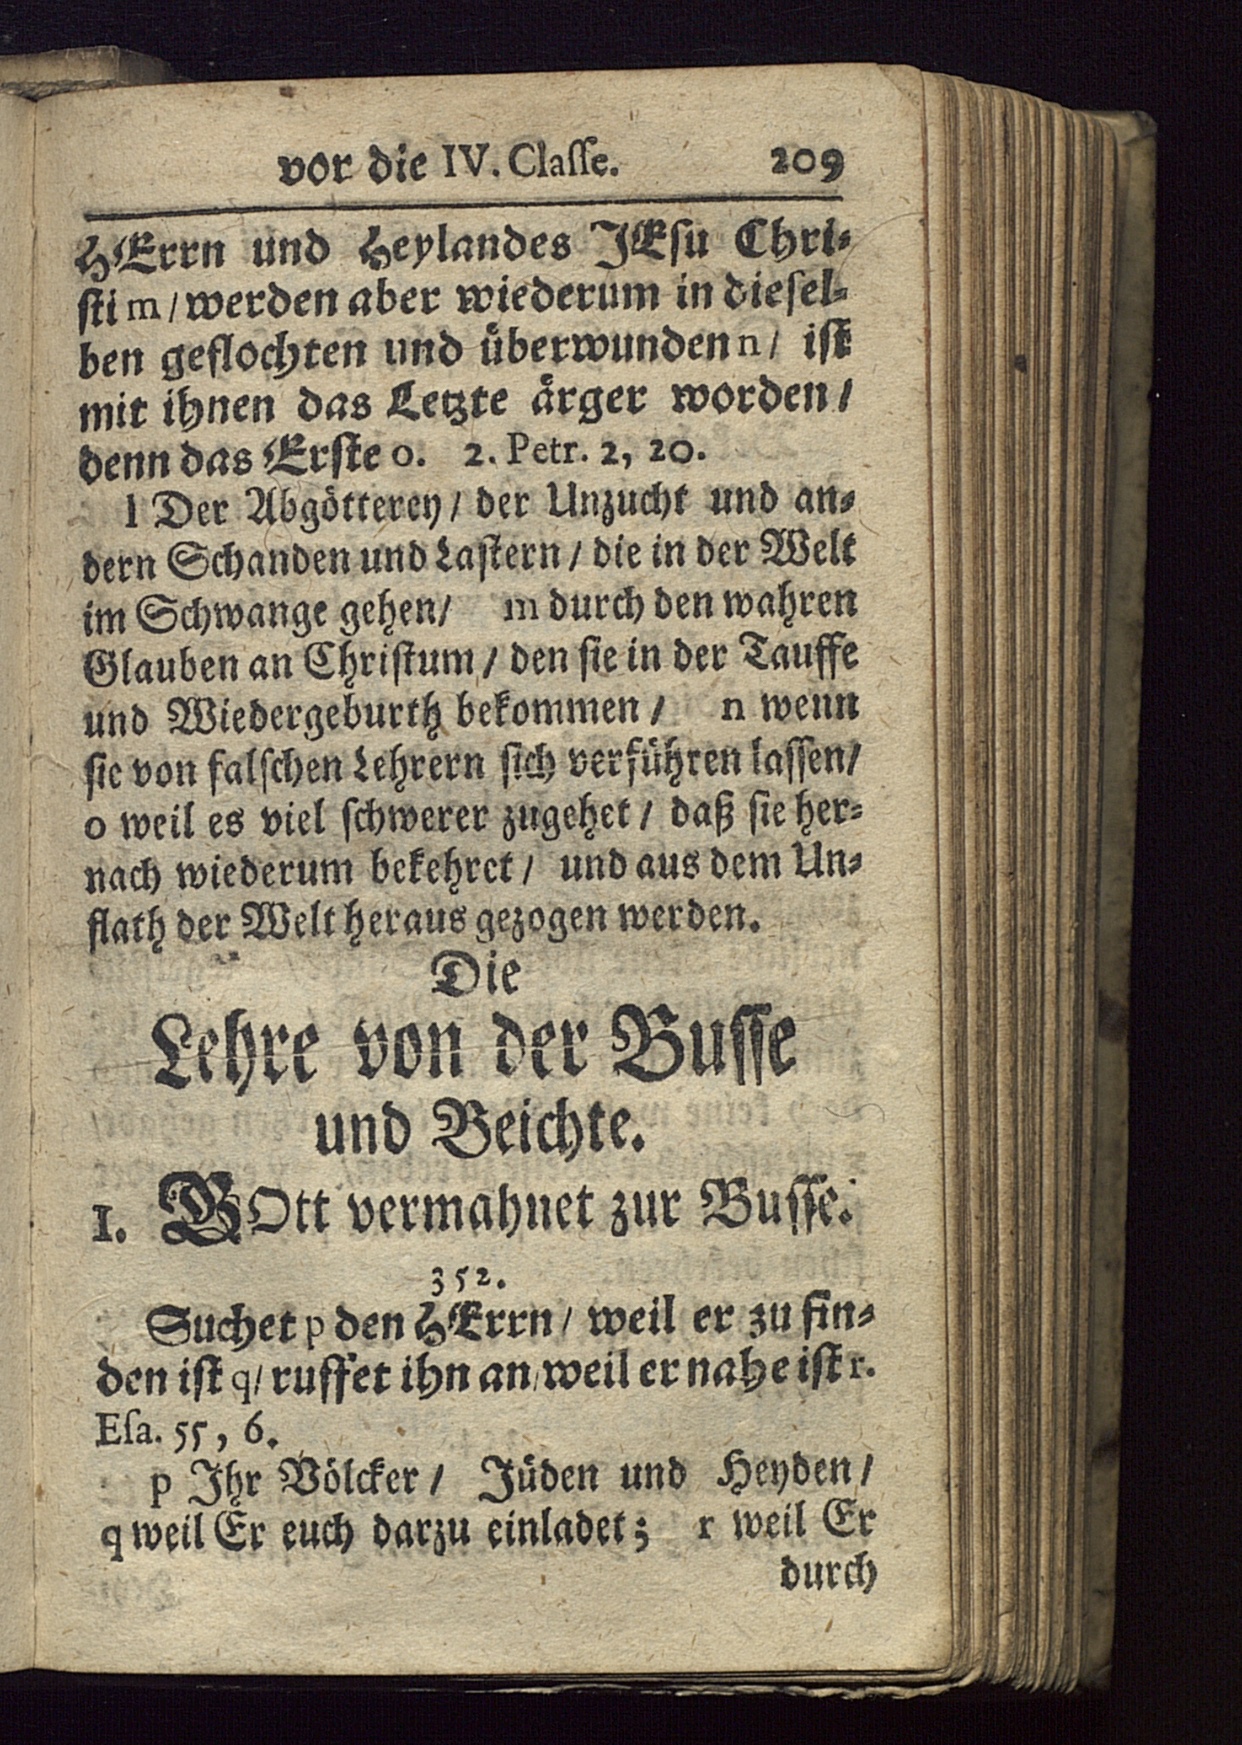 vor die IV. Classe. 209
HErrn und Heylandes JEsu Chri-
sti m / werden aber wiederum in diesel-
ben geflochten und überwunden n / ist
mit ihnen das Letzte ärger worden /
denn das Erste o. 2. Petr. 2, 20.
l Der Abgötterey / der Unzucht und an-
dern Schanden und Lastern / die in der Welt
im Schwange gehen / m durch den wahren
Glauben an Christum / den sie in der Tauffe
und Wiedergeburth bekommen / n wenn
sie von falschen Lehrern sich verführen lassen /
o weil es viel schwerer zugehet / daß sie her-
nach wiederum bekehret / und aus dem Un-
flath der Welt heraus gezogen werden.
Die
Lehre von der Busse
und Beichte.
1. GOtt vermahnet zur Busse.
352.
Suchet p den HErrn / weil er zu fin-
den ist q / ruffet ihn an / weil er nahe ist r.
Esa. 55, 6.
p Ihr Völcker / Jüden und Heyden /
q weil Er euch darzu einladet; r weil Er
durch